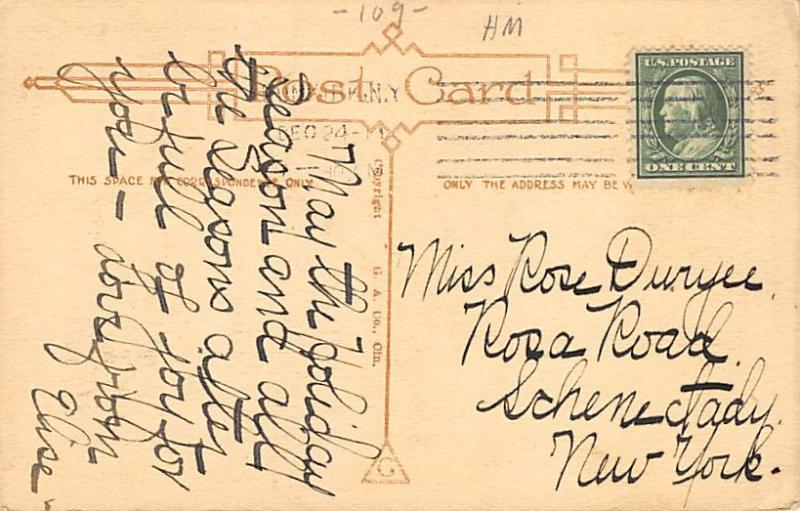 -109-
HM
Post Card
U.S. POSTAGE
ONE CENT
N.Y
DEC 24
THIS SPACE FOR CORRESPONDENCE ONLY
ONLY THE ADDRESS MAY BE
Copyright G. A. Co., Cin.
G
May the Holiday
season and all
the seasons after
be full of joy for
you — love from
Elise
Miss Rose Duryee.
Rosa Road.
Schenectady.
New York.